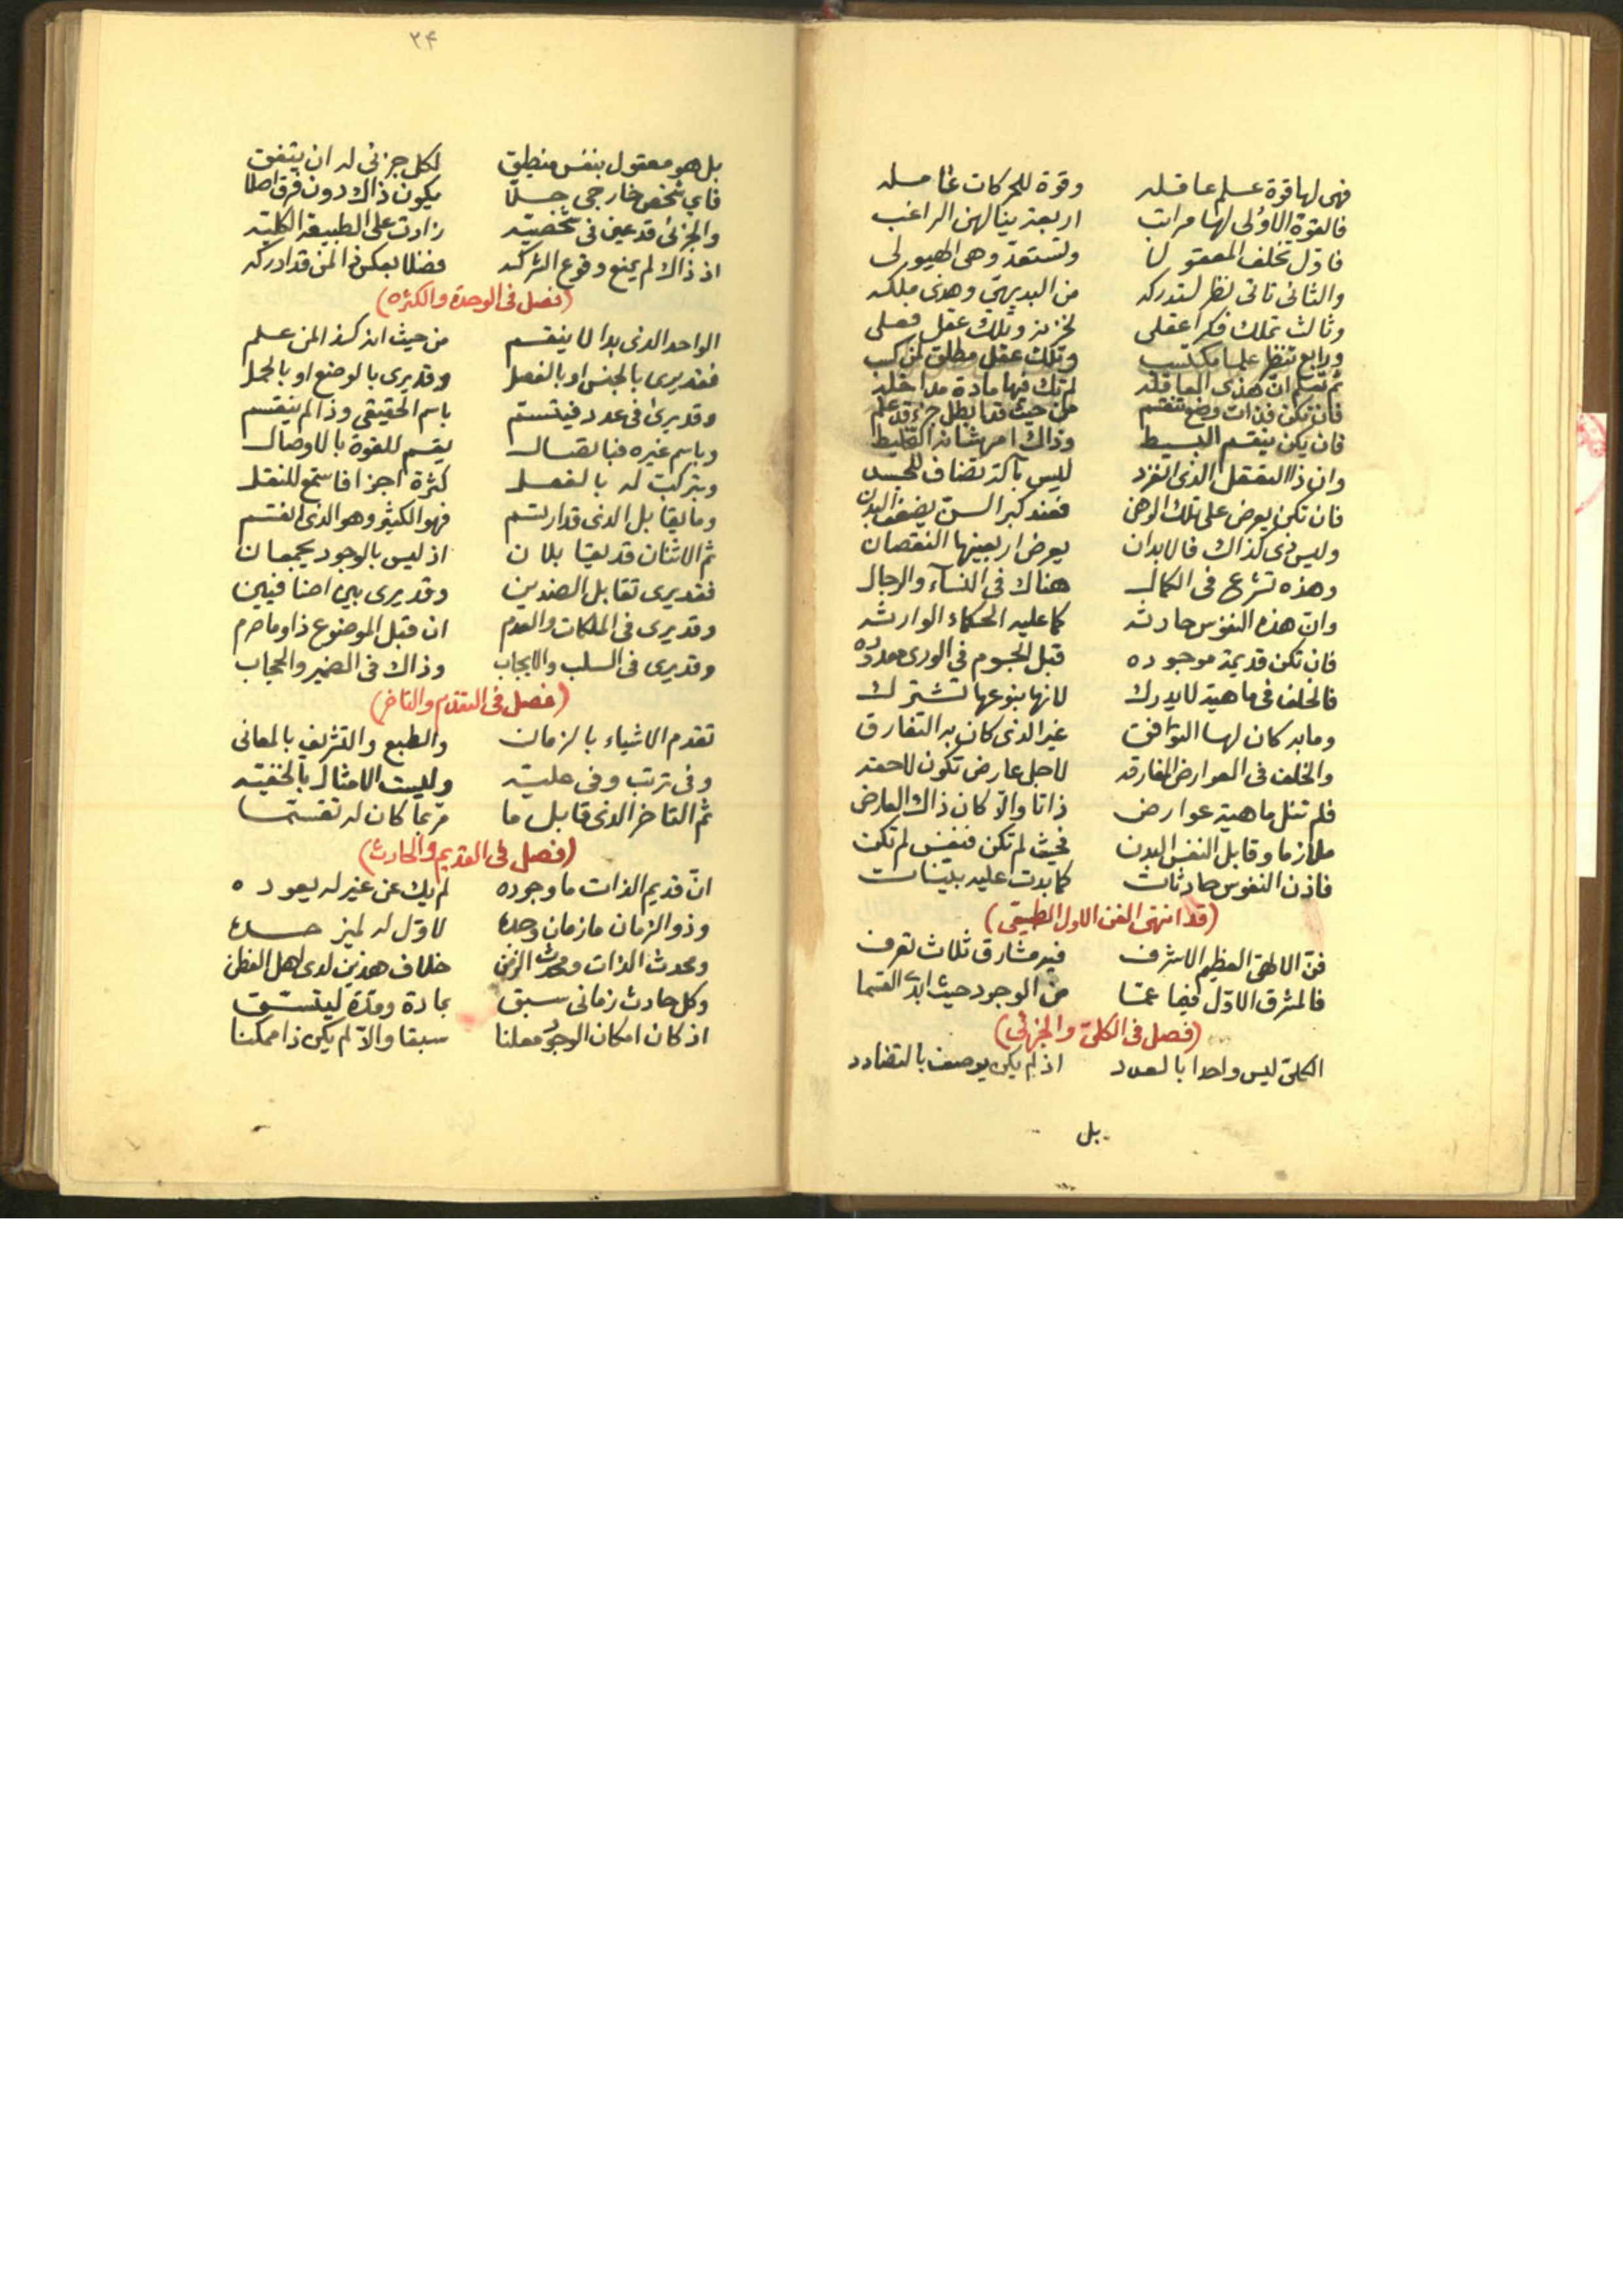 فهى لها قوة علم عاقله وقوة للحركات عامله
فالقوة الاولى لها مراتب اربعة ينالهن الراغب
فاول تخلف المعقولا وتستعد وهى الهيولى
والثانى تاتى نظر لتدركه من البديهى وهذى ملكه
وثالث تملك فكرا عقلى لخزنه وتلك عقل فعلى
ورابع تنظر علما مكتسب وتلك عقل مطلق لمن كسب
ثم تعلم ان هذى العاقله لم تك فيها مادة مداخله
فان تكن فذات وضع تنقسم من حيث قد ابطل جزء قد علم
فان يكن ينقسم البسيط وذاك امر شانه التخليط
وان ذا التعقل الذى انفرد ليس بآلة تضاف للجسد
فان تكن يعرض على تلك الوهن فعند كبر السن يضعف البدن
وليس ذى كذاك فالابدان يعرض اربعينها النقصان
وهذه تشرع فى الكمال هناك فى النسآء والرجال
وان هذه النفوس حادثه كما عليه الحكماء الوارثه
فان تكن قديمة موجوده قبل الجسوم فى الورى معدوده
فالخلف فى ماهية لا يدرك لانها بنوعها تشترك
وما به كان لها التوافق غير الذى كان به التفارق
والخلف فى العوارض المفارقه لاجل عارض تكون لاحقه
فلم تنل ماهية عوارض ذاتا والا كان ذاك العارض
ملازما وقابل النفس البدن فحيث لم تكن فنفس لم تكن
فاذن النفوس حادثات كما بدت عليه بلينات
(قد انتهى الفن الاول الطبيعى)
فن الالهى العظيم الاشرف فيه مشارق ثلاث تعرف
فالمشرق الاول فيما عمّا من الوجود حيث ابدى القسما
(فصل فى الكلى والجزئى)
الكلى ليس واحدا بالعدد اذ لم يكن يوصف بالتضادد
بل
٢۴
بل هو معقول بنفس منطبق لكل جزئى له ان يتفق
فاى شخص خارجى جلا يكون ذاك دون فرق اصلا
والجزئى قد عين فى شخصيته زادت على الطبيعة الكليته
اذ ذاك لم يمنع وقوع الشركه فضلا بعكس ذا لمن قد ادركه
(فصل فى الوحدة والكثره)
الواحد الذى بدا لا ينقسم من حيث انه كذا لمن علم
فقد يرى بالجنس او بالفصل وقد يرى بالوضع او بالحمل
وقد يرى فى عدد فيتسم باسم الحقيقى وذا لم ينقسم
وباسم غيره فباتصال يقسم للقوة بالاوصال
وبتركب له بالفعل كثرة اجزا فاستمع للنقل
وما يقابل الذى قد ارتسم فهو الكثير وهو الذى انقسم
ثم الاثنان قد يقابلان اذ ليس بالوجود يجمعان
فقد يرى تقابل الضدين وقد يرى بين اضافيين
وقد يرى فى الملكات والعدم ان قبل الموضوع ذا وما حرم
وقد يرى فى السلب والايجاب وذاك فى الضمير والحجاب
(فصل فى التقدم والتاخر)
تقدم الاشياء بالزمان والطبع والتشريف بالمعانى
وفى ترتب وفى عليته وليست الامثال بالخفيته
ثم التاخر الذى قابل ما مر بما كان له تقسما
(فصل فى القديم والحادث)
ان قديم الذات ما وجوده لم يك عن غير له يعوده
وذو الزمان ما زمان وجده لا اول له لميز حده
ومحدث الذات ومحدث الزمن خلاف هذين لدى اهل الفطن
وكل حادث زمانى سبق بمادة ومدة ليتسق
اذ كان امكان الوجود معلنا سبقا والا لم يكن ذا ممكنا